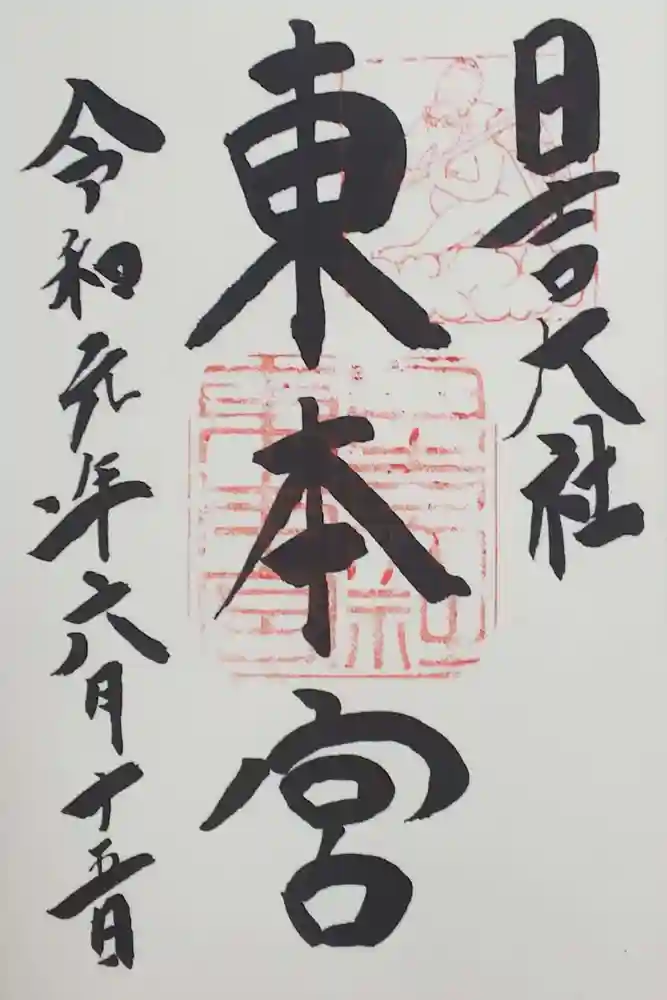 日吉大社
東本宮
令和元年六月十五日